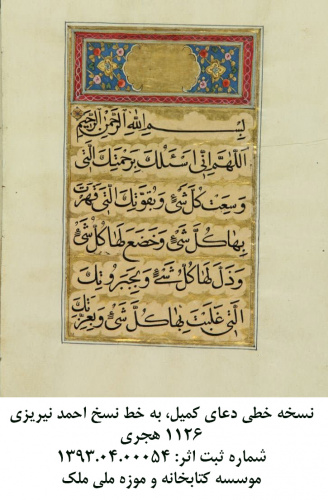 بِسْمِ اللهِ الرَّحْمٰنِ الرَّحِيمِ
اَللّٰهُمَّ اِنّى اَسْئَلُكَ بِرَحْمَتِكَ الَّتى
وَسِعَتْ كُلَّ شَىْءٍ وَبِقُوَّتِكَ الَّتى قَهَرْتَ
بِهَا كُلَّ شَىْءٍ وَخَضَعَ لَهَا كُلُّ شَىْءٍ
وَذَلَّ لَهَا كُلُّ شَىْءٍ وَبِجَبَرُوتِكَ
الَّتى غَلَبْتَ بِهَا كُلَّ شَىْءٍ وَبِعِزَّتِكَ
نسخه خطی دعای کمیل، به خط نسخ احمد نیریزی
۱۱۲۶ هجری
شماره ثبت اثر: ۱۳۹۳.۰۴.۰۰۰۵۴
موسسه کتابخانه و موزه ملی ملک